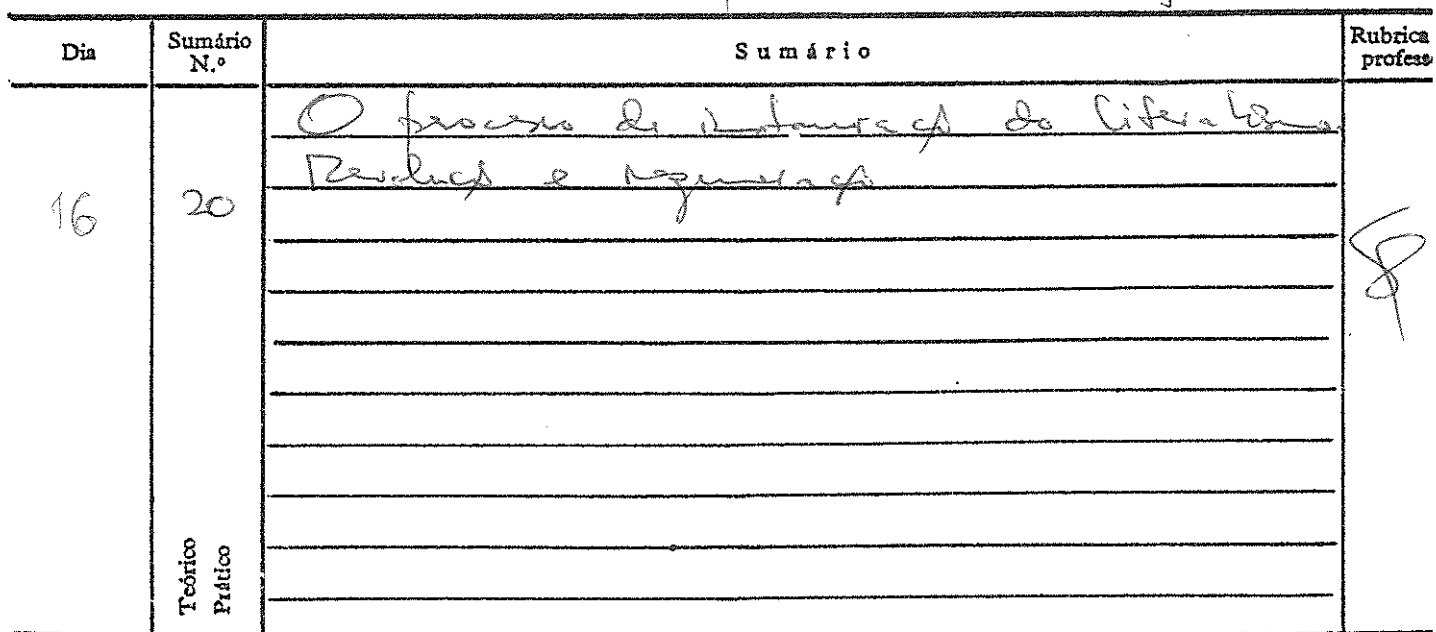 Dia
Sumário N.º
Sumário
Rubrica
profess
O processo de instauração do liberalismo.
Revolução e regeneração
16
20
Teórico
Prático